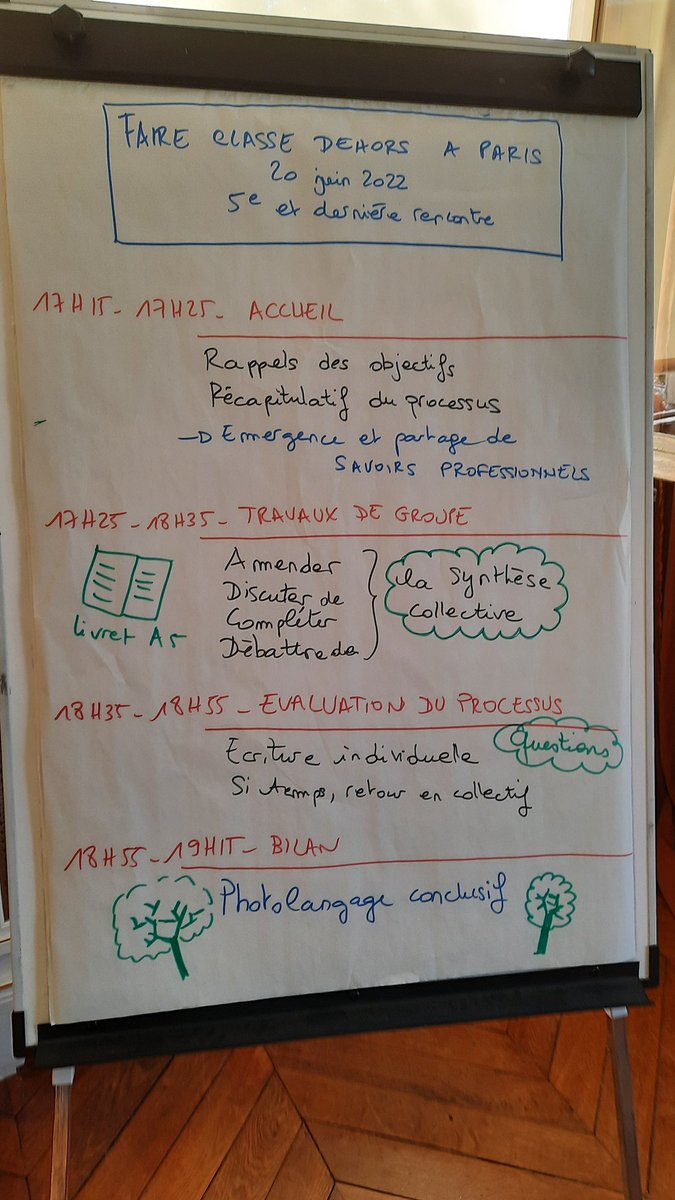 FAIRE CLASSE DEHORS A PARIS
20 juin 2022
5e et dernière rencontre
17H15 - 17H25 - ACCUEIL
Rappels des objectifs
Récapitulatif du processus
Emergence et partage de
SAVOIRS PROFESSIONNELS
17H25 - 18H35 - TRAVAUX DE GROUPE
Amender
Discuter de
Compléter
Débattre de
la Synthèse
Collective
livret A5
18H35 - 18H55 - EVALUATION DU PROCESSUS
Questions
Ecriture individuelle
Si temps, retour en collectif
18H55 - 19H15 - BILAN
Photolangage conclusif